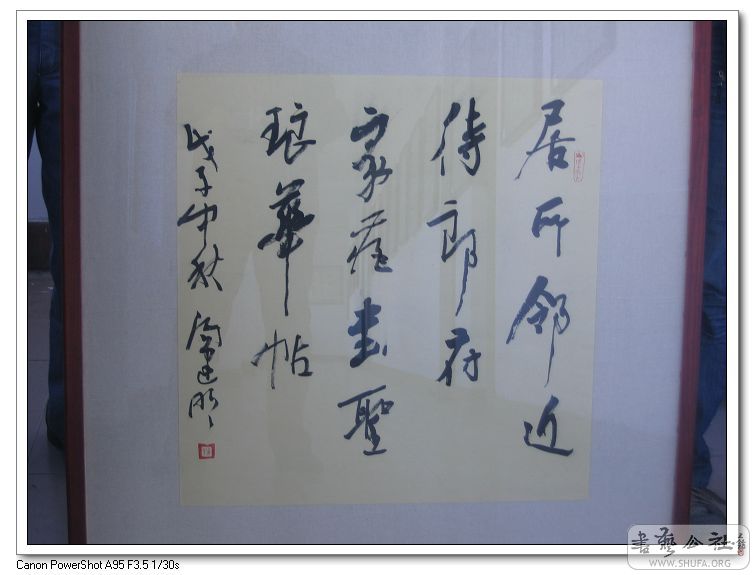 居所邻近
侍郎府
家藏書聖
琅華帖
戊子中秋 陶建明
書藝公社
WWW.SHUFA.ORG
Canon PowerShot A95 F3.5 1/30s